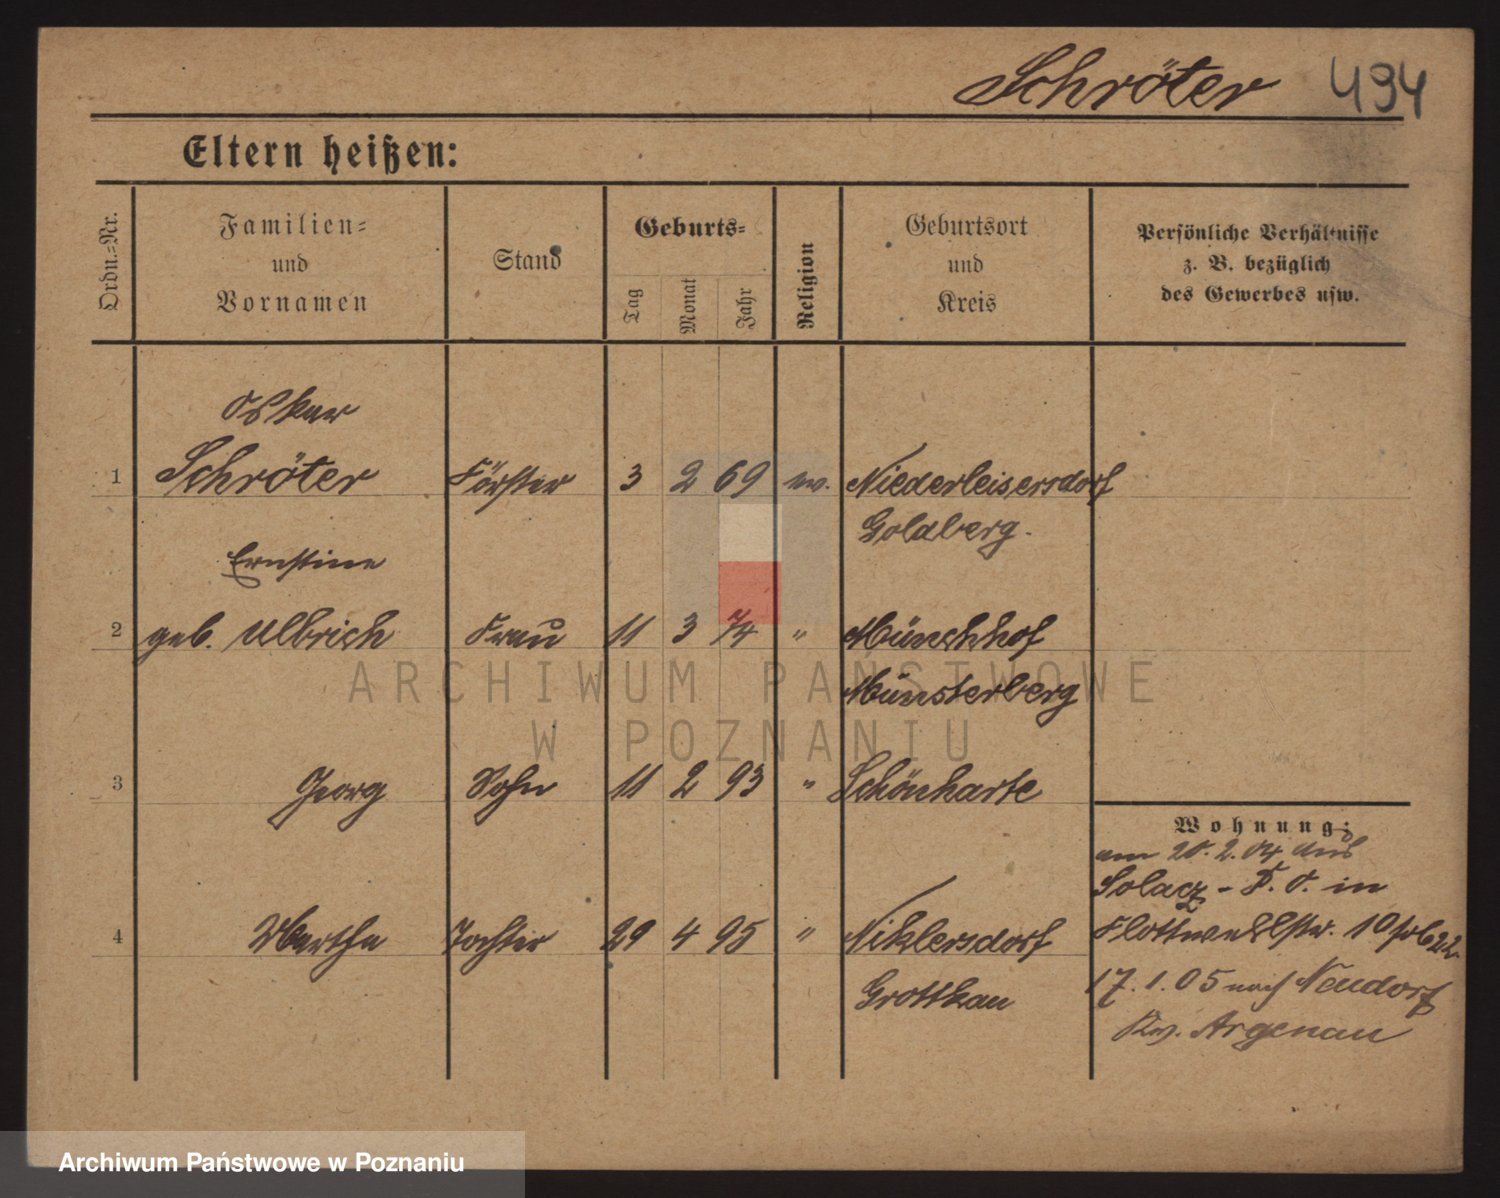 Schröter 494
Eltern heißen:
Ordn.=Nr.
Familien=
und
Vornamen
Stand
Geburts=
Tag
Monat
Jahr
Religion
Geburtsort
und
Kreis
Persönliche Verhältnisse
z. B. bezüglich
des Gewerbes usw.
Oskar
1 Schröter Förster 3 2 69 ev. Niederleisersdorf
Goldberg.
Ernstine
2 geb. Ulbrich Frau 11 3 74 " Münchhof
Münsterberg
3 Georg Sohn 11 2 93 " Schönharte
4 Martha Tochter 29 4 95 " Niklersdorf
Grottkau
Wohnung:
am 20.2.04 aus
Solacz - F. O. in
Flottwellstr. 10
17.1.05 nach Neudorf
Argenau
ARCHIWUM PAŃSTWOWE
W POZNANIU
Archiwum Państwowe w Poznaniu